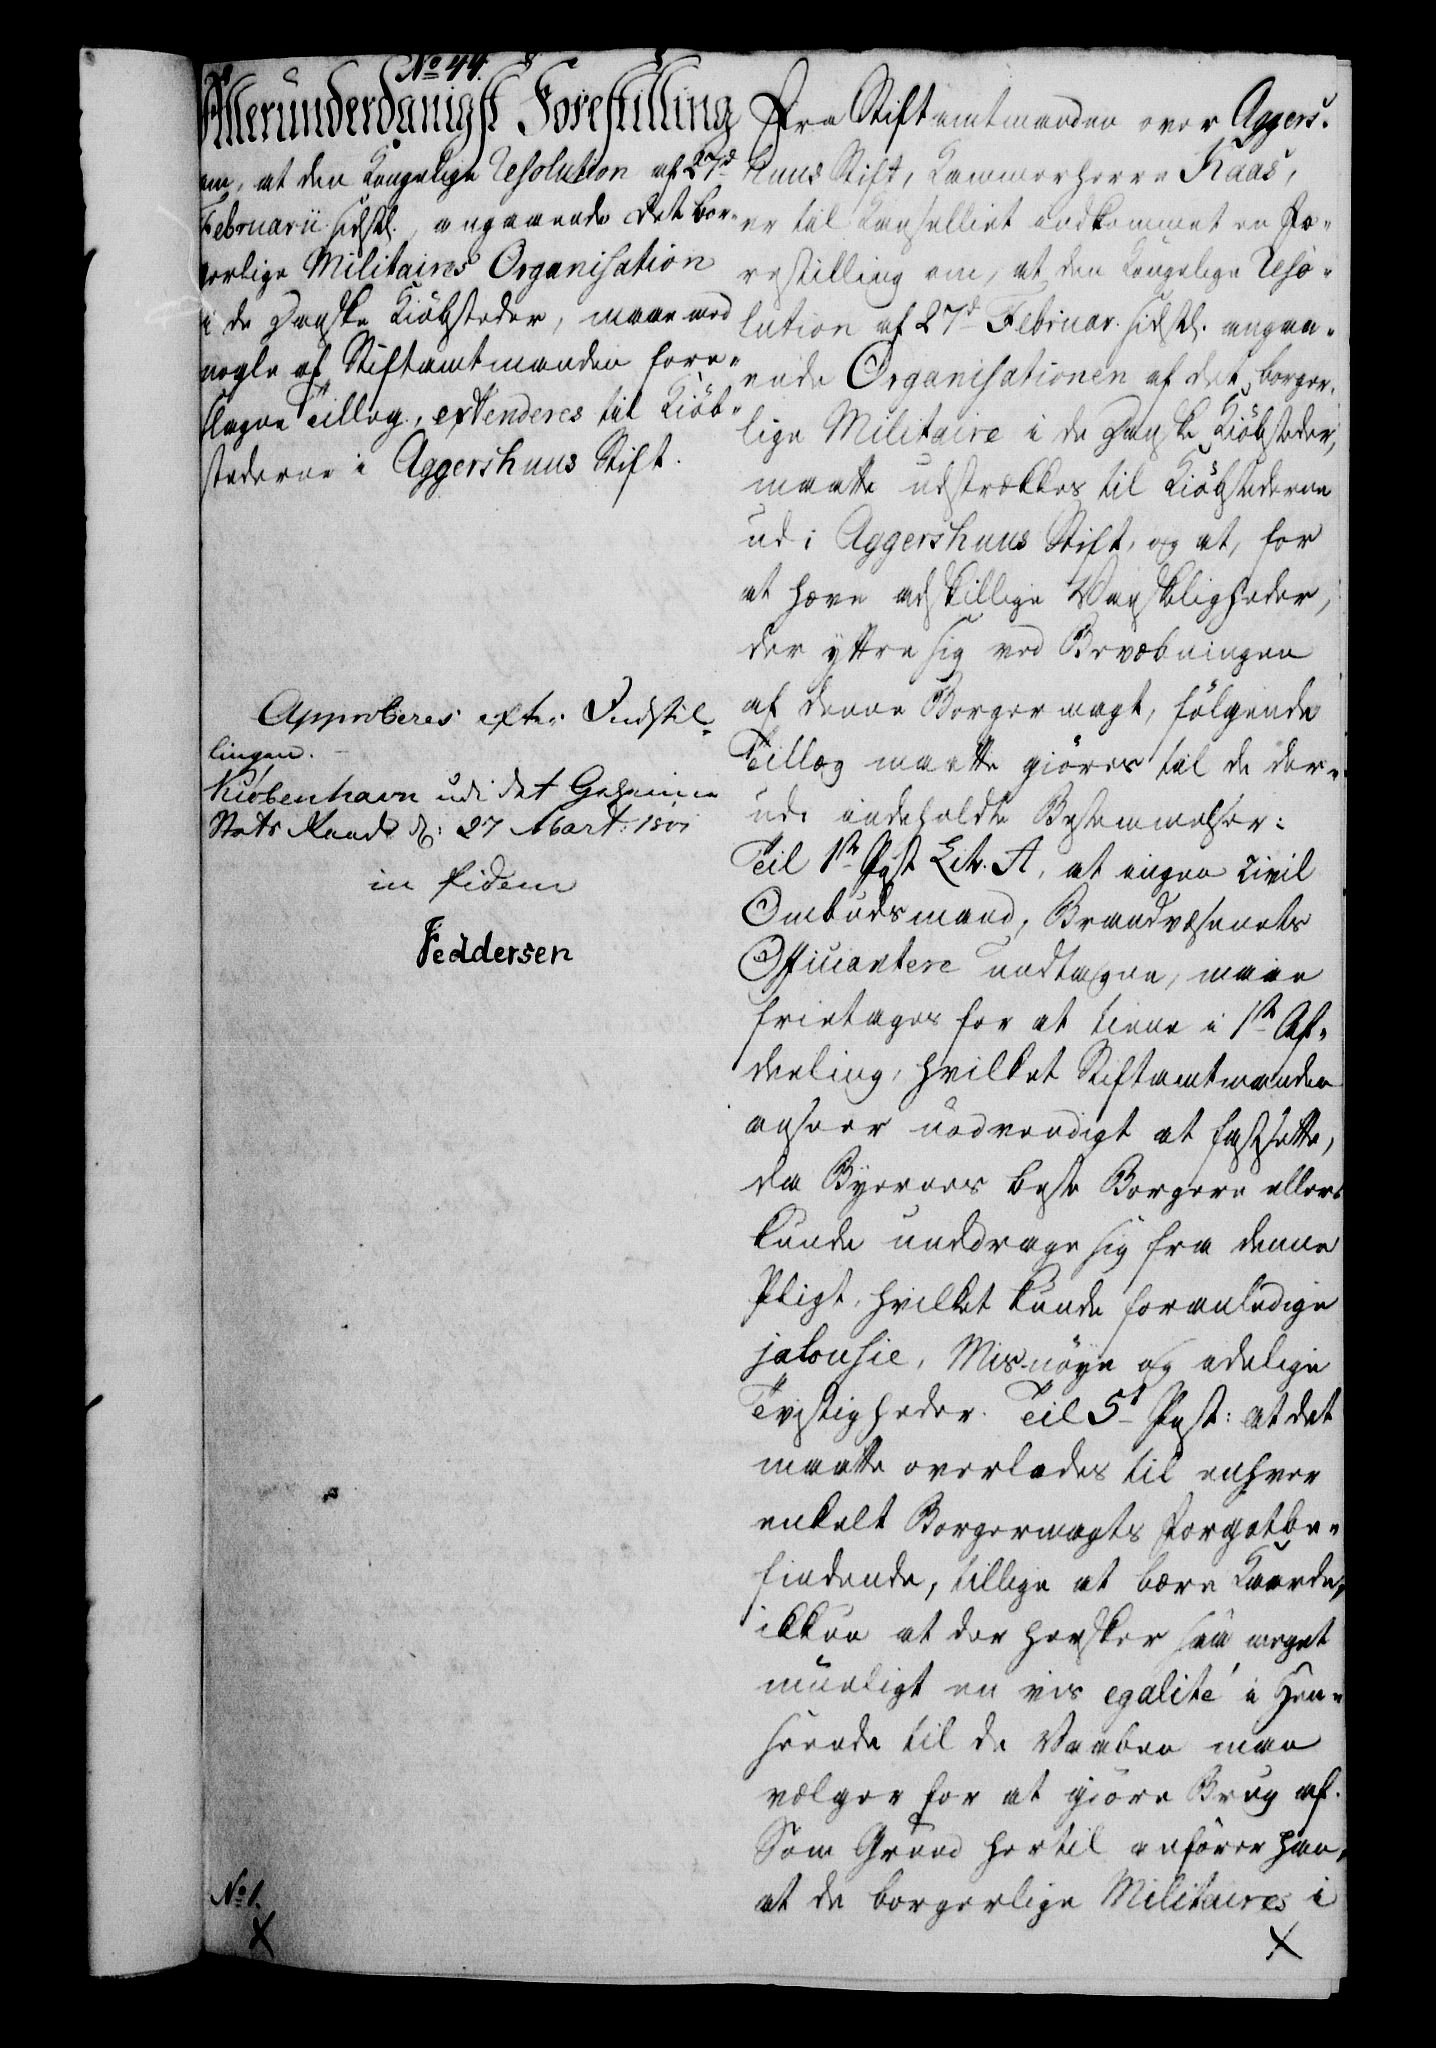 No 44.
Allerunderdanigst Forestilling
om, at den Kongelige Resolution af 27d
Februarii sidstl., angaaende det bor-
gerlige Militaires Organisation
i de Danske Kiöbsteder, maae med
nogle af Stiftamtmanden fore-
slagne Tillæg, extenderes til Kiöb-
stæderne i Aggershuus Stift.
Approberes efter Indstil-
lingen.
Kiöbenhavn udi det Geheime
Stats Raad d: 27 Mart: 1801
in fidem
Feddersen
No 1.
X
Fra Stiftamtmanden over Aggers-
huus Stift, Kammerherre Kaas,
er til Kancelliet indkommet en Fo-
restilling om, at den Kongelige Reso-
lution af 27d Februar. sidstl. angaa-
ende Organisationen af det borger-
lige Militaire i de Danske Kiöbsteder,
maatte udstrækkes til Kiöbstederne
udi Aggershuus Stift, og at, for
at hæve adskillige Vanskeligheder,
der yttre sig ved Bevæbningen
af denne Borgermagt, fölgende
Tillæg maatte giöres til de der-
udi indeholdte Bestemmelser:
Til 1ste Post Litr. A, at ingen civil
Ombudsmand, Brandvæsenets
Officiantere undtagne, maae
fritages for at tiene i 1ste Af-
deeling, hvilket Stiftamtmanden
anseer nödvendigt at fastsætte,
da Byernes beste Borgere ellers
kunde unddrage sig fra denne
Pligt, hvilket kunde foranledige
jalousie, Misnöye og idelige
Tvistigheder. Til 5t Post: at det
maatte overlades til enhver
enkelt Borgermagts Forgotbe-
findende, tillige at bære Kaarde,
ikkun at der hersker saa meget
mueligt en vis egalité i Hen-
seende til de Vaaben man
vælger for at giöre Brug af.
Som Grund hertil anförer han,
at de borgerlige Militaires i
X